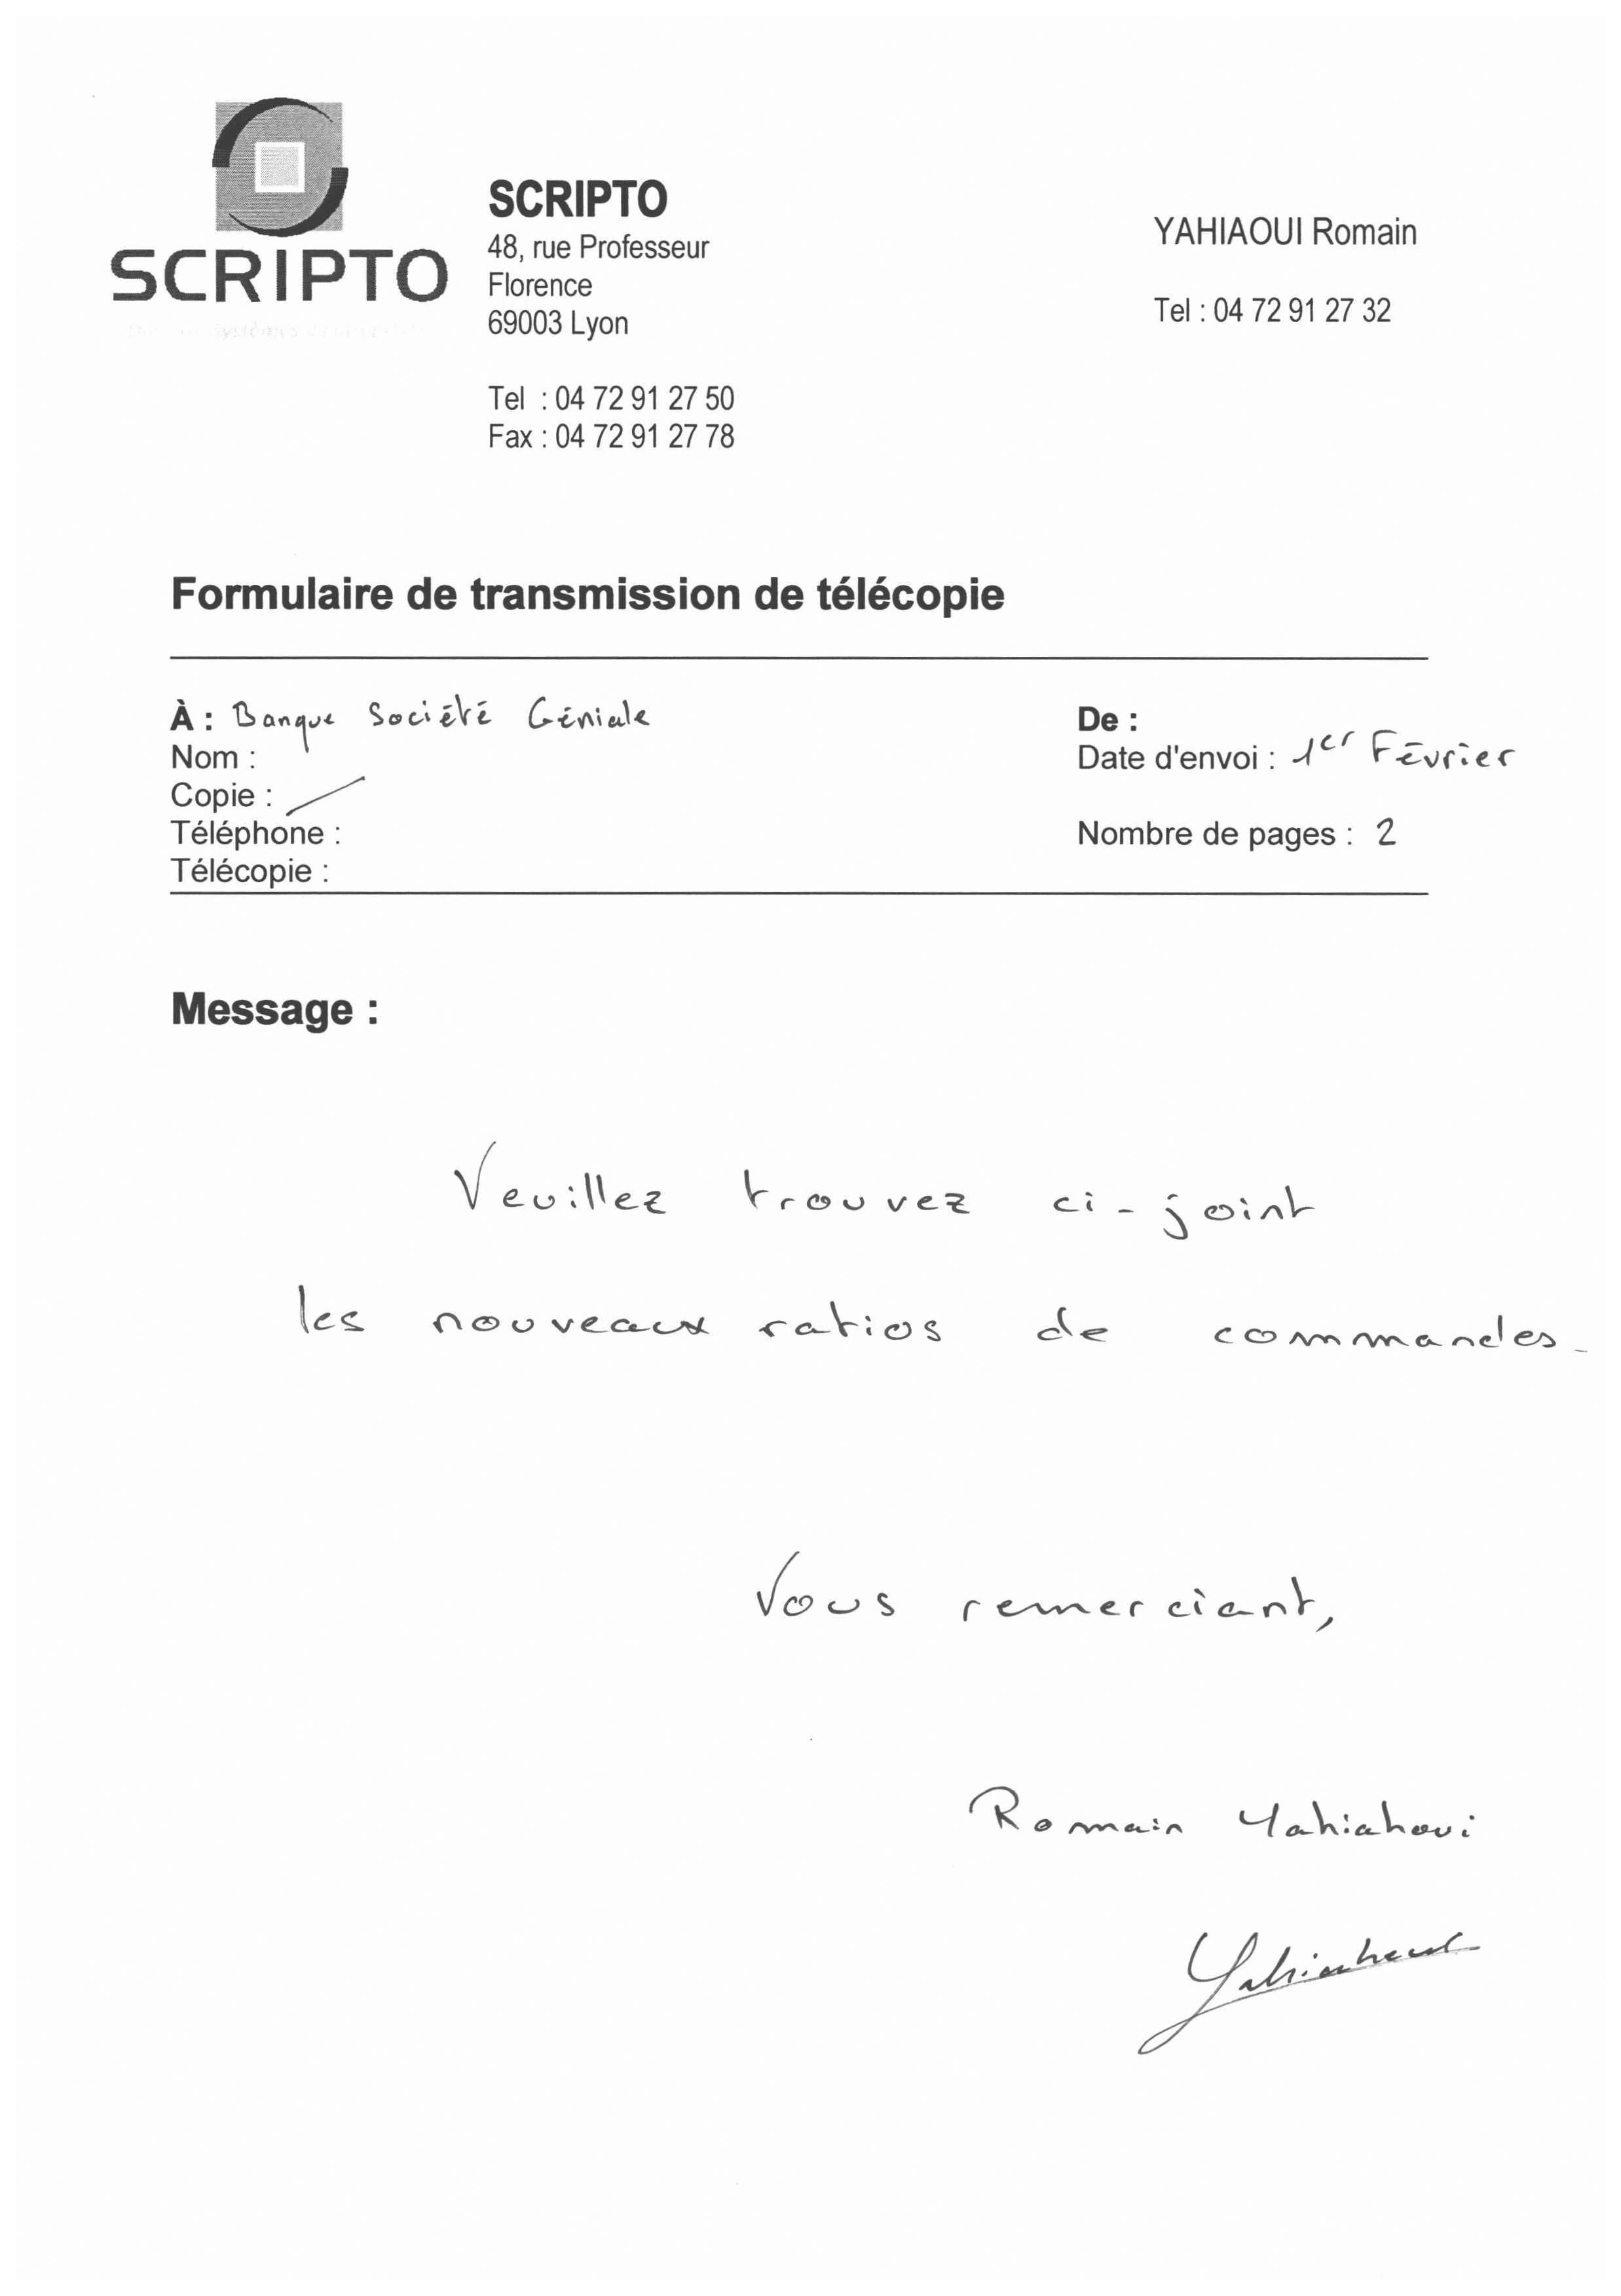 SCRIPTO
SCRIPTO
48, rue Professeur
Florence
69003 Lyon
Tel : 04 72 91 27 50
Fax : 04 72 91 27 78
YAHIAOUI Romain
Tel : 04 72 91 27 32
Formulaire de transmission de télécopie
À : Banque Société Géniale
Nom :
Copie :
Téléphone :
Télécopie :
De :
Date d'envoi : 1er Février
Nombre de pages : 2
Message :
Veuillez trouvez ci-joint
les nouveaux ratios de commandes.
Vous remerciant,
Romain Yahiahoui